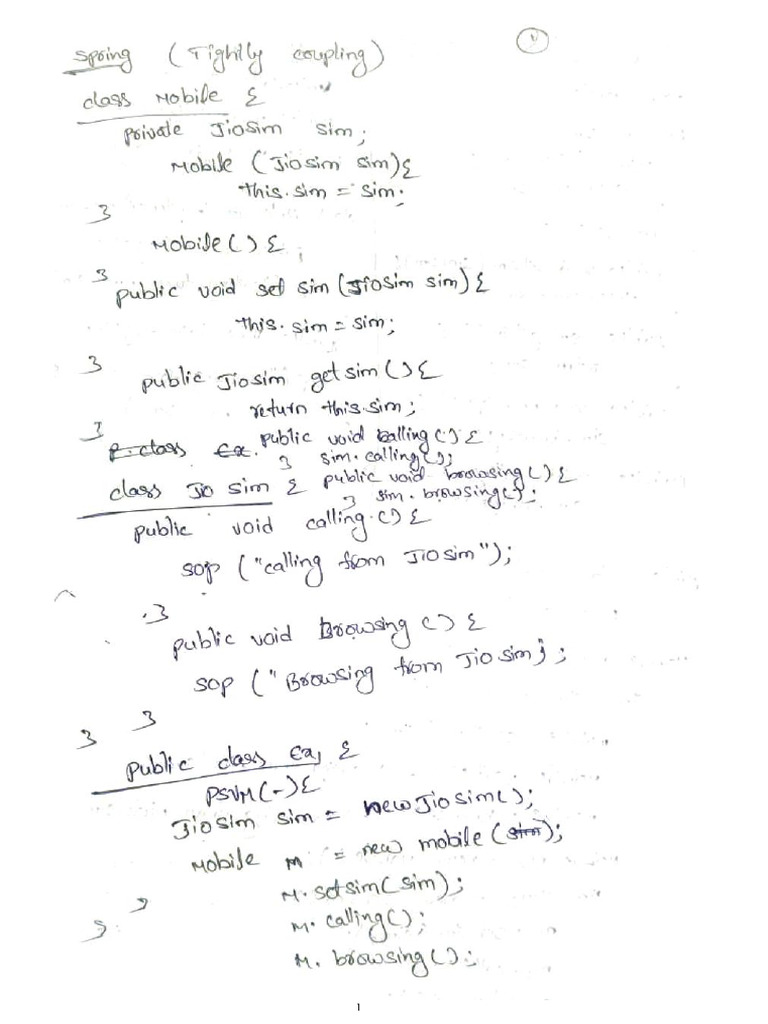 Spring (Tightly coupling)
class Mobile {
private JioSim sim;
Mobile (Jiosim sim){
this.sim = sim;
}
Mobile () {
}
public void set sim (Jiosim sim) {
this.sim = sim;
}
public Jiosim get sim () {
return this.sim;
}
p. class Ex. public void calling () {
} sim.calling();
class Jio sim { public void browsing () {
} sim.browsing();
public void calling () {
sop ("calling from Jiosim");
}
public void Browsing () {
sop ("Browsing from Jio sim);
} }
public class Ex, {
PSVM (-) {
Jiosim sim = new Jiosim();
Mobile M = new mobile (sim);
M.setsim(sim);
M.calling();
M.browsing();
} }
1